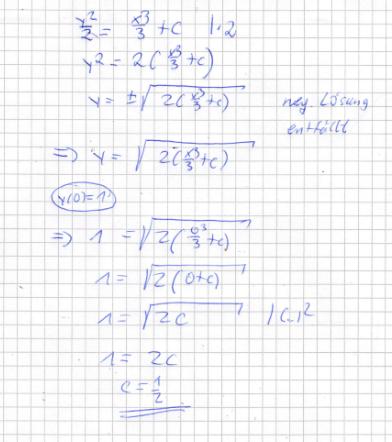 y²/2 = x³/3 + c |·2
y² = 2(x³/3 + c)
y = ±√(2(x³/3 + c)) neg. Lösung
entfällt
=> y = √(2(x³/3 + c))
y(0)=1
=> 1 = √(2(0³/3 + c))
1 = √(2(0+c))
1 = √(2c) |(..)²
1 = 2c
c = 1/2